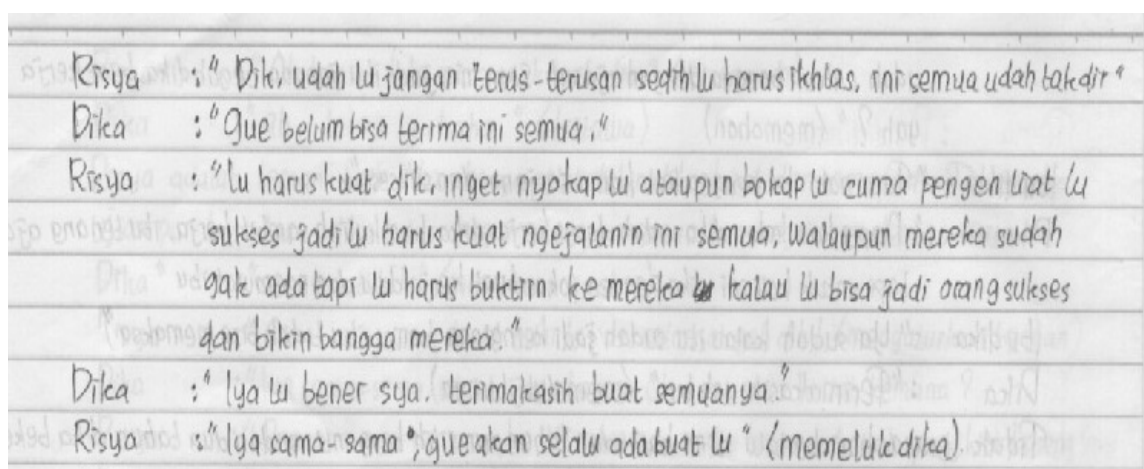 Risya : " Dik. udah lu jangan terus-terusan sedih lu harus ikhlas, ini semua udah takdir "
Dika : " Gue belum bisa terima ini semua. "
Risya : " lu harus kuat, dik. inget nyokap lu ataupun bokap lu cuma pengen liat lu
sukses jadi lu harus kuat ngejalanin ini semua, walaupun mereka sudah
gak ada tapi lu harus buktiin ke mereka kalau lu bisa jadi orang sukses
dan bikin bangga mereka. "
Dika : " Iya lu bener sya. terimakasih buat semuanya. "
Risya : " Iya sama-sama ", gue akan selalu ada buat lu " (memeluk dika).